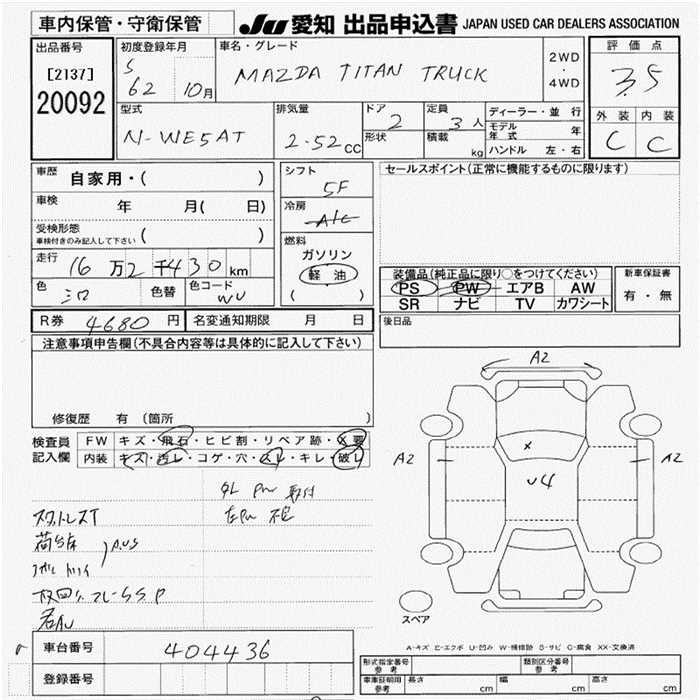 車内保管・守衛保管
JU 愛知 出品申込書 JAPAN USED CAR DEALERS ASSOCIATION
出品番号
[2137]
20092
初度登録年月
S
62 10月
車名・グレード
MAZDA TITAN TRUCK
2WD
・
4WD
評価点
3.5
外装 内装
C C
型式
N-WE5AT
排気量
2.52cc
ドア
2
形状
定員
3人
積載
kg
ディーラー・並行
モデル年式 年
ハンドル 左・右
車歴
自家用・( )
車検
年 月( 日)
受検形態
車検付きのみ記入して下さい ( )
走行
16万2千430km
色
色替
色コード
WU
シフト
5F
冷房
A/C
燃料
ガソリン
軽油
( )
セールスポイント(正常に機能するものに限ります)
装備品(純正品に限り○をつけてください)
PS PW エアB AW
SR ナビ TV カワシート
新車保証書
有・無
R券 4680円
名変通知期限 月 日
後日品
注意事項申告欄(不具合内容等は具体的に記入して下さい)
修復歴 有 (箇所 )
検査員
記入欄
FW キズ・飛石・ヒビ割・リペア跡・X要
内装 キズ・汚レ・コゲ・穴・スレ・キレ・破レ
A2
A2 A2
x
U4
スペア
A-キズ E-エクボ U-凹み W-補修跡 S-サビ C-腐食 XX-交換済
車台番号
404436
登録番号
形式指定番号
参考
類別区分番号
参考
車庫証明用
参考
長さ cm
幅 cm
高さ cm